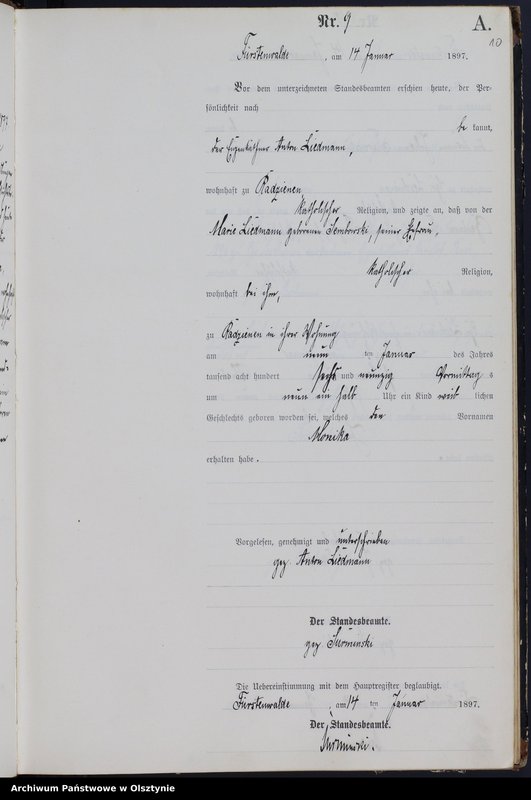 Nr. 9
A.
10
Fürstenwalde, am 14 Januar 1897.
Vor dem unterzeichneten Standesbeamten erschien heute, der Per-
sönlichkeit nach
be kannt,
der Eigenkäthner Anton Liedmann,
wohnhaft zu Radzienen,
katholischer Religion, und zeigte an, daß von der
Marie Liedmann geborenen Sembowski, seiner Ehefrau,
katholischer Religion,
wohnhaft bei ihm,
zu Radzienen in ihrer Wohnung
am neun ten Januar des Jahres
tausend acht hundert sechs und neunzig Vormittag s
um neun ein halb Uhr ein Kind weib lichen
Geschlechts geboren worden sei, welches den Vornamen
Monika
erhalten habe.
Vorgelesen, genehmigt und unterschrieben
gez Anton Liedmann
Der Standesbeamte.
gez Surminski
Die Uebereinstimmung mit dem Hauptregister beglaubigt.
Fürstenwalde, am 14 ten Januar 1897.
Der Standesbeamte.
Surminski.
Archiwum Państwowe w Olsztynie